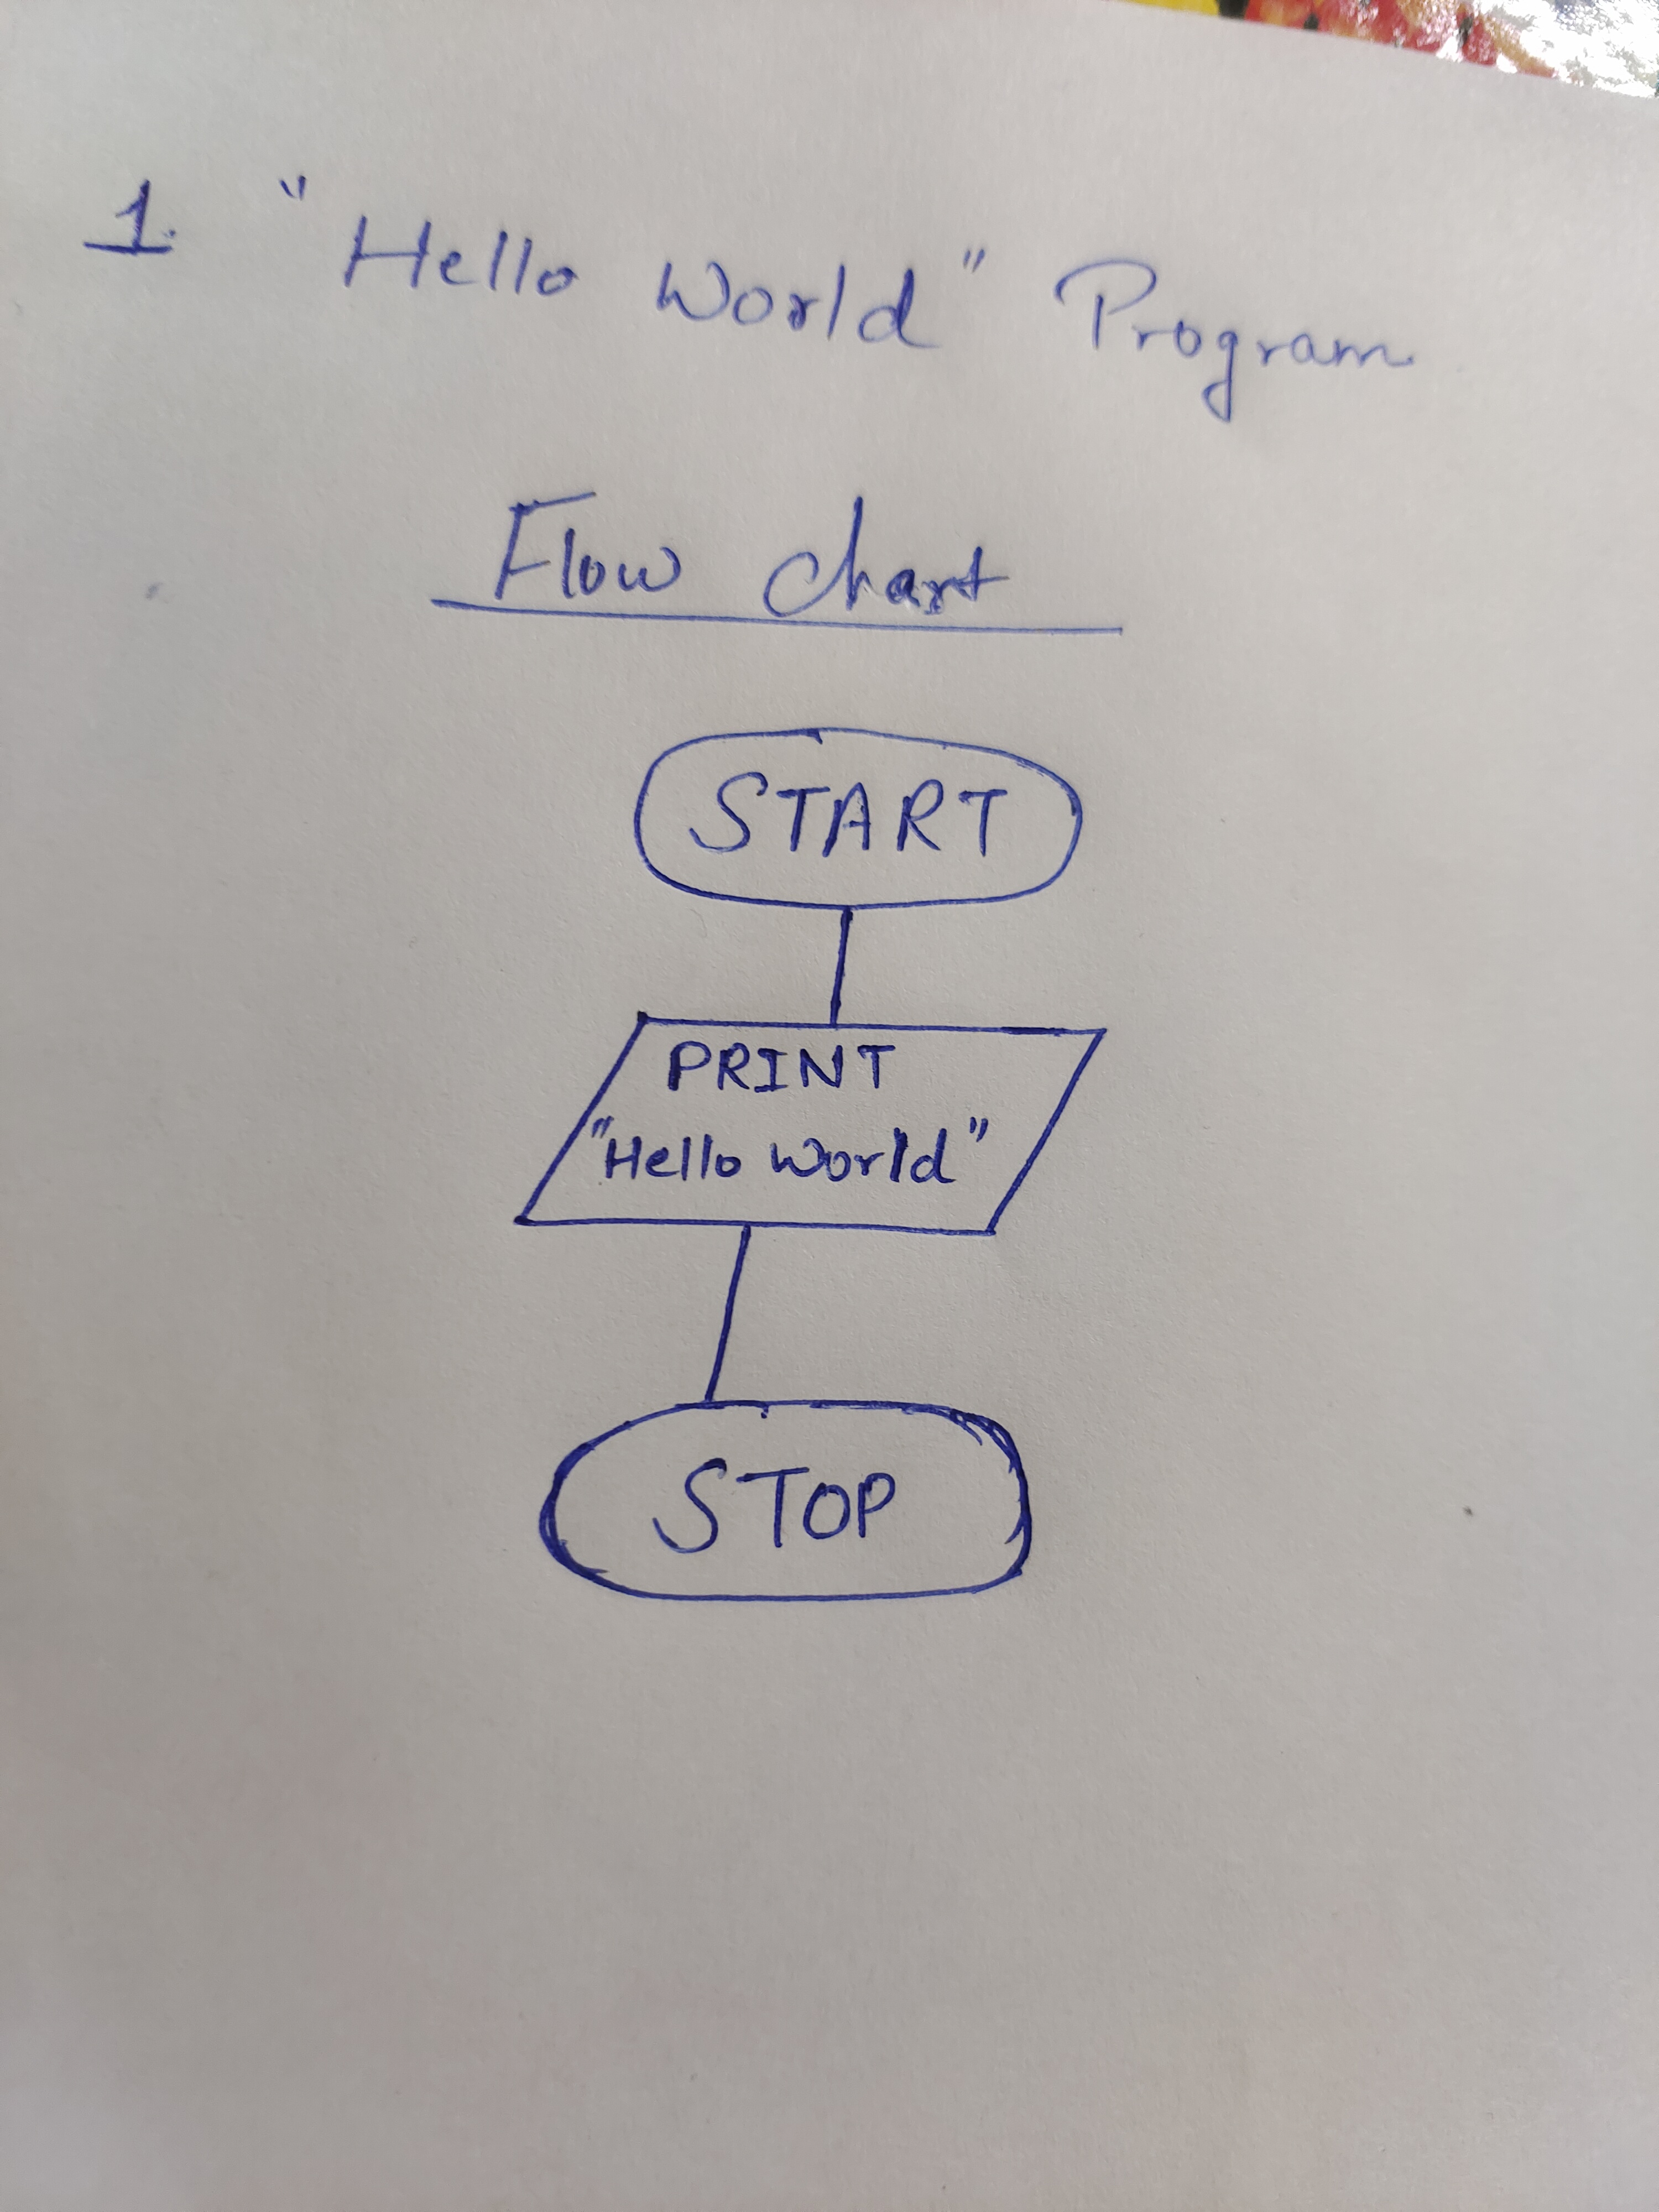 1. "Hello World" Program
Flow chart
START
PRINT
"Hello World"
STOP